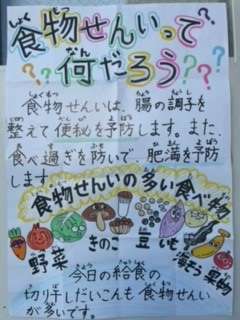 食物せんいって
何だろう???
食物せんいは、腸の調子を
整えて便秘を予防します。また、
食べ過ぎを防いで、肥満を予防
します。
食物せんいの多い食べ物
野菜 きのこ 豆 いも 海そう 果物
今日の給食の
切り干しだいこんも食物せんい
が多いです。